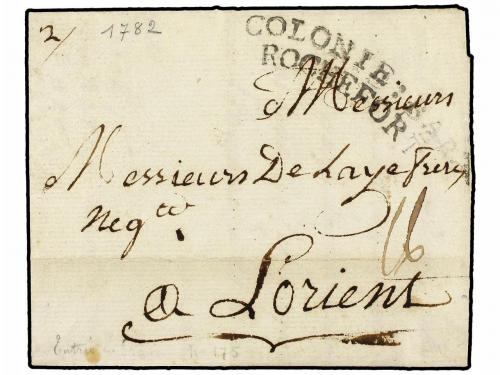 2/ 1782
COLONIE PAR
ROCHEFORT
A Messieurs
Messieurs De Laye freres
Negts
16
a Lorient